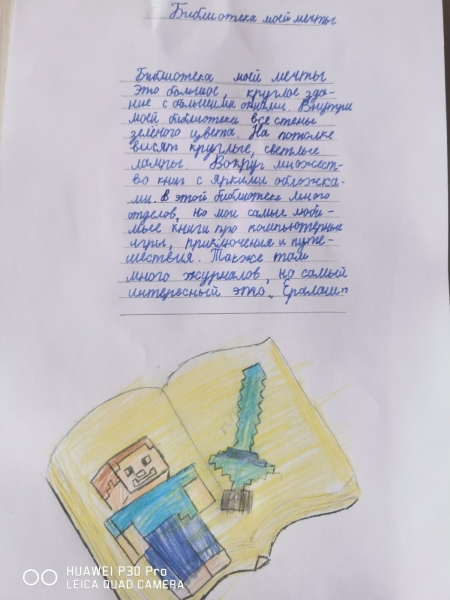 Библиотека моей мечты
Библиотека моей мечты
это большое, круглое зда-
ние с большими окнами. Внутри
моей библиотеки все стены
зелёного цвета. На потолке
висят круглые, светлые
лампы. Вокруг множест-
во книг с яркими обложка-
ми. В этой библиотеке много
отделов, но мои самые люби-
мые книги про компьютерные
игры, приключения и путе-
шествия. Также там
много журналов, но самый
интересный это „Ералаш”
HUAWEI P30 Pro
LEICA QUAD CAMERA